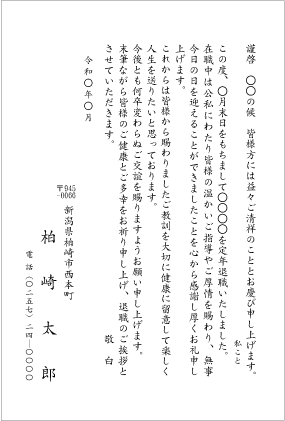 謹啓　〇〇の候　皆様方には益々ご清祥のこととお慶び申し上げます。
私こと
この度、〇月末日をもちまして〇〇〇〇を定年退職いたしました。
在職中は公私にわたり皆様の温かいご指導やご厚情を賜わり、無事
今日の日を迎えることができましたことを心から感謝し厚くお礼申し
上げます。
これからは皆様から賜わりましたご教訓を大切に健康に留意して楽しく
人生を送りたいと思っております。
今後とも何卒変わらぬご交誼を賜りますようお願い申し上げます。
末筆ながら皆様のご健康とご多幸をお祈り申し上げ、退職のご挨拶と
させていただきます。
敬　白
令和〇年〇月
〒945-0066
新潟県柏崎市西本町
柏崎太郎
電話（〇二五七）二四―〇〇〇〇